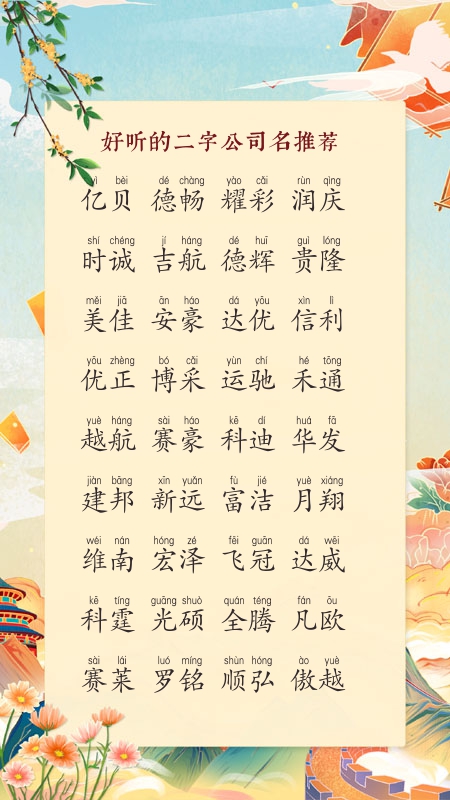 好听的二字公司名推荐
yì bèi dé chàng yào cǎi rùn qìng
亿贝 德畅 耀彩 润庆
shí chéng jí háng dé huī guì lóng
时诚 吉航 德辉 贵隆
měi jiā ān háo dá yōu xìn lì
美佳 安豪 达优 信利
yōu zhèng bó cǎi yùn chí hé tōng
优正 博采 运驰 禾通
yuè háng sài háo kē dí huá fā
越航 赛豪 科迪 华发
jiàn bāng xīn yuǎn fù jié yuè xiáng
建邦 新远 富洁 月翔
wéi nán hóng zé fēi guān dá wēi
维南 宏泽 飞冠 达威
kē tíng guāng shuò quán téng fán ōu
科霆 光硕 全腾 凡欧
sài lái luó míng shùn hóng ào yuè
赛莱 罗铭 顺弘 傲越